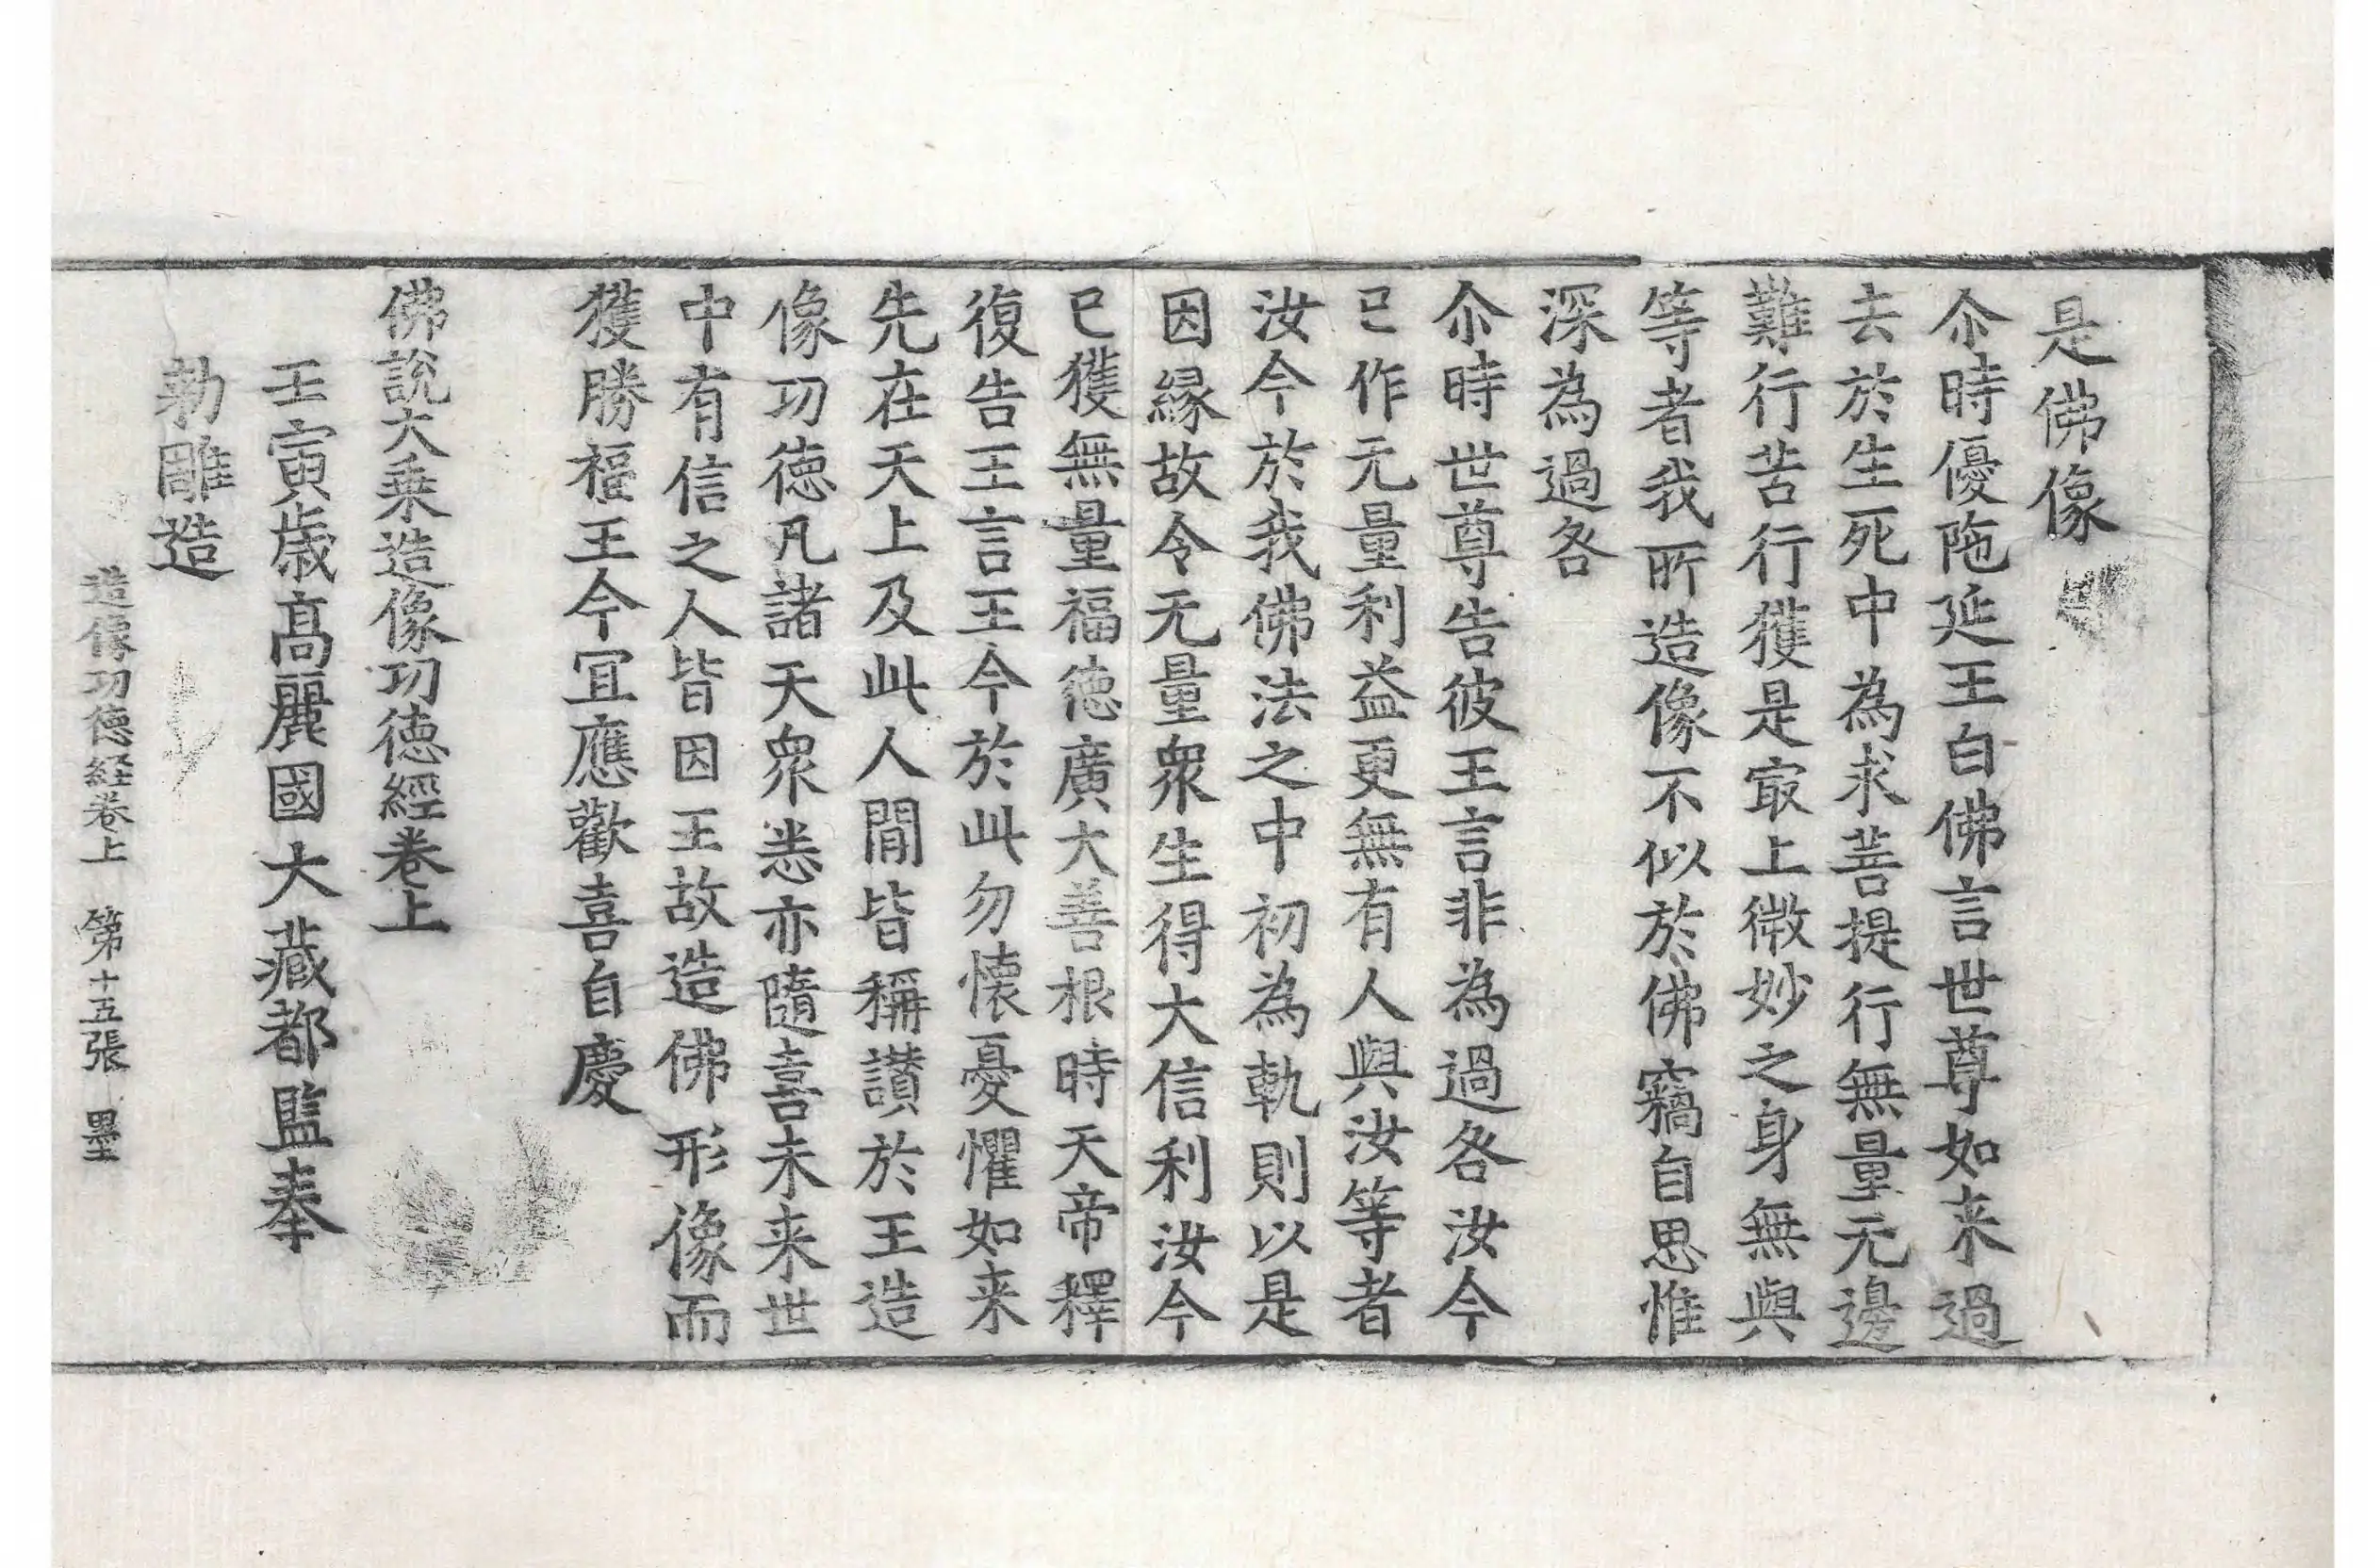 是佛像
尒時優陁延王白佛言世尊如来過
去於生死中為求菩提行無量无邊
難行苦行獲是㝡上微妙之身無與
等者我所造像不似於佛竊自思惟
深為過咎
尒時世尊告彼王言非為過咎汝今
已作无量利益更無有人與汝等者
汝今於我佛法之中初為軌則以是
因縁故令无量衆生得大信利汝今
已獲無量福徳廣大善根時天帝釋
復告王言王今於此勿懷憂懼如来
先在天上及此人閒皆稱讃於王造
像功徳凡諸天衆悉亦隨喜未来世
中有信之人皆因王故造佛形像而
獲勝福王今冝應歡喜自慶
佛說大乗造像功徳經卷上
壬寅歳髙麗國大藏都監奉
勑雕造
造像功徳経卷上 第十五張 墨